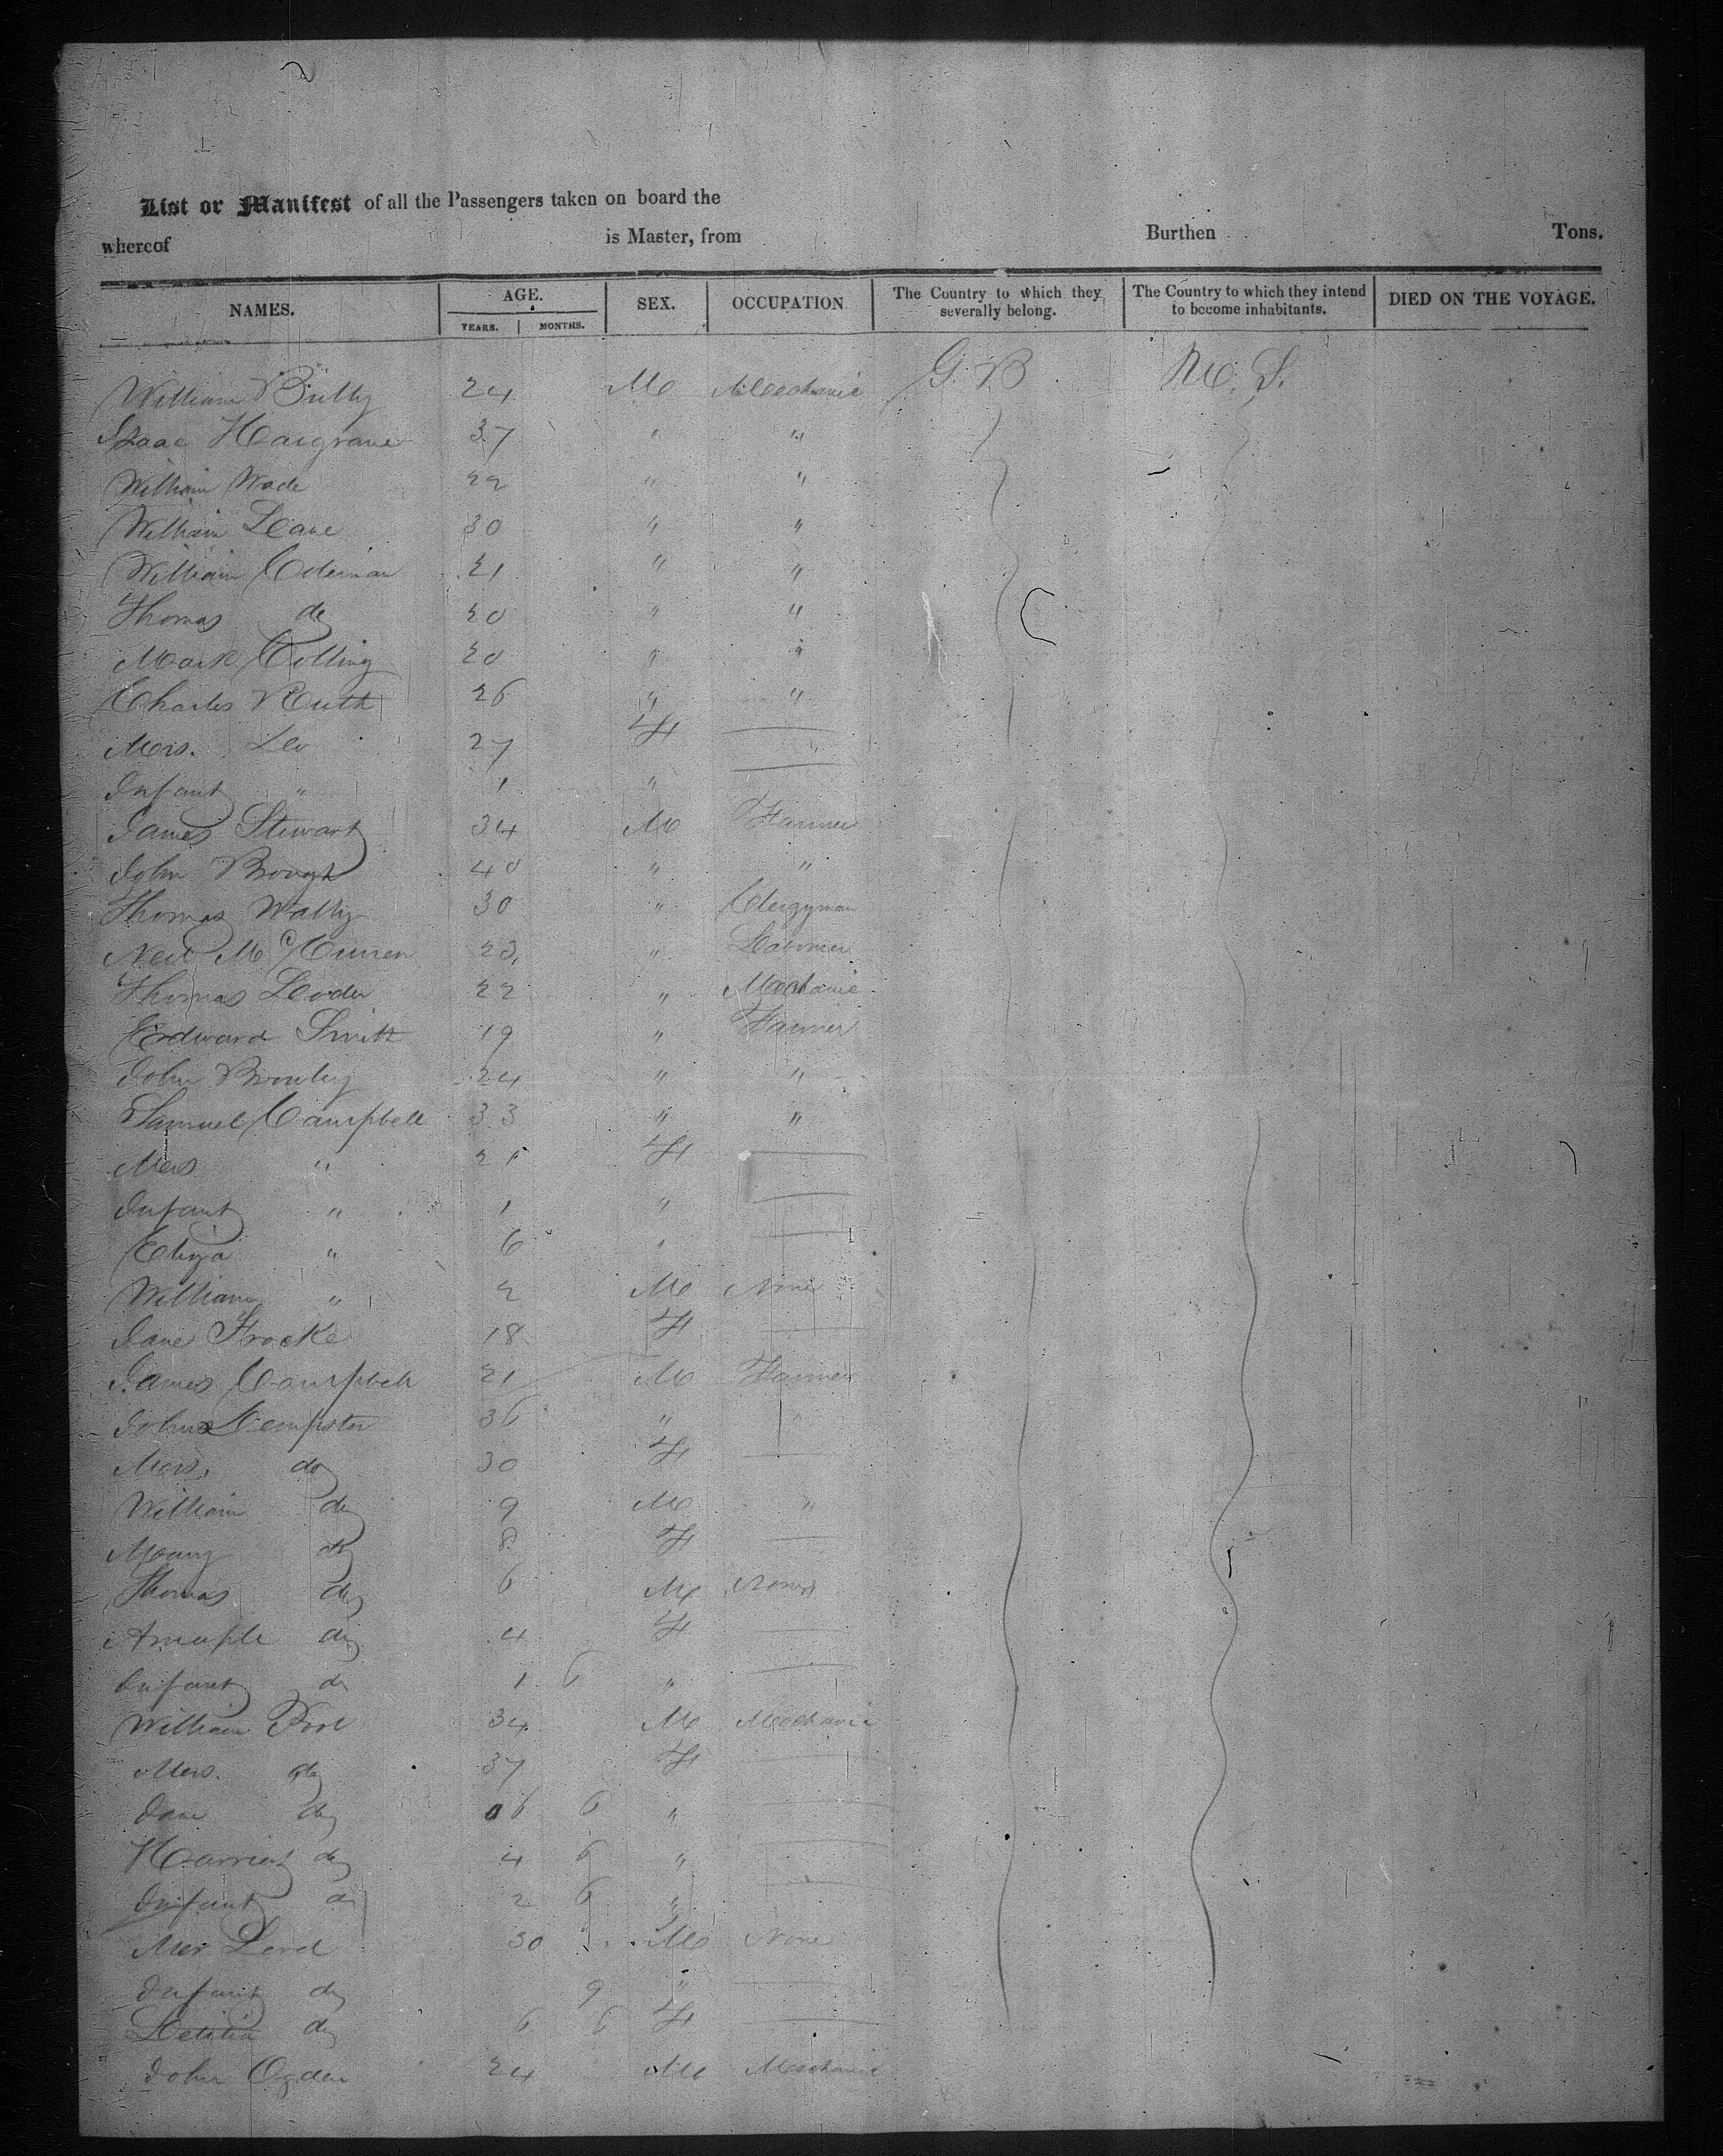 List or Manifest of all the Passengers taken on board the
whereof is Master, from Burthen Tons.
NAMES. AGE. SEX. OCCUPATION The Country to which they severally belong. The Country to which they intend to become inhabitants. DIED ON THE VOYAGE.
YEARS. MONTHS.
William 24 M Mechanic G. B U. S.
Isaac Hargrave 37 " "
William Wade 22 " "
William 30 " "
William Coleman 21 " "
Thomas do 20 " "
Mark Colling 20 " "
Charles Ruth 26 " "
Mrs. 27 F
Infant " 1 "
James Stewart 34 M Farmer
John Brough 40 " "
Thomas 30 " Clergyman
Neil Mc 23 "
Thomas 22 " Mechanic
Edward Smith 19 " Farmer
John 24 " "
Samuel Campbell 33 " "
Mrs " F
Infant " 1 "
Eliza " 6 "
William " 2 M None
Jane 18 F
James Campbell 21 M Farmer
John Dempster 36 " "
Mrs. do 30 F
William do 9 M "
Mary do 8 F
Thomas do 6 M None
do 4 F
Infant do 1 6 "
William 34 M Mechanic
Mrs. do 37 F
Jane do 6 6 "
Harriet do 4 6 "
Infant do 2 6 "
Lord 30 M None
Infant do 9 "
Letitia do 6 6 F
John Ogden 24 M Mechanic